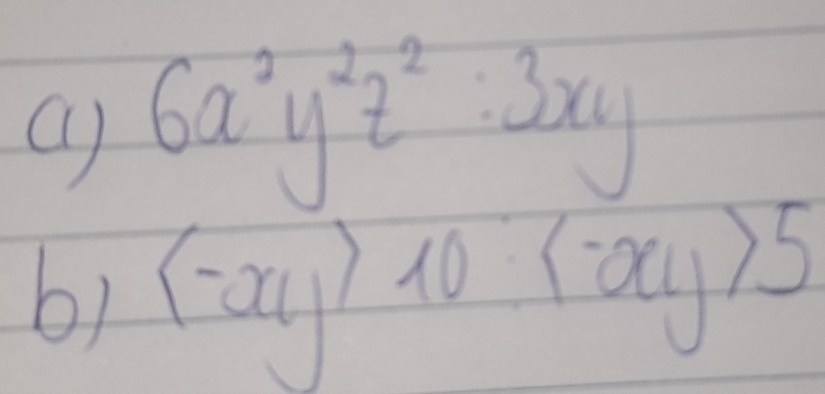 a) 6a²y²z² : 3xy
b) (-xy) 10 : (-xy) 5